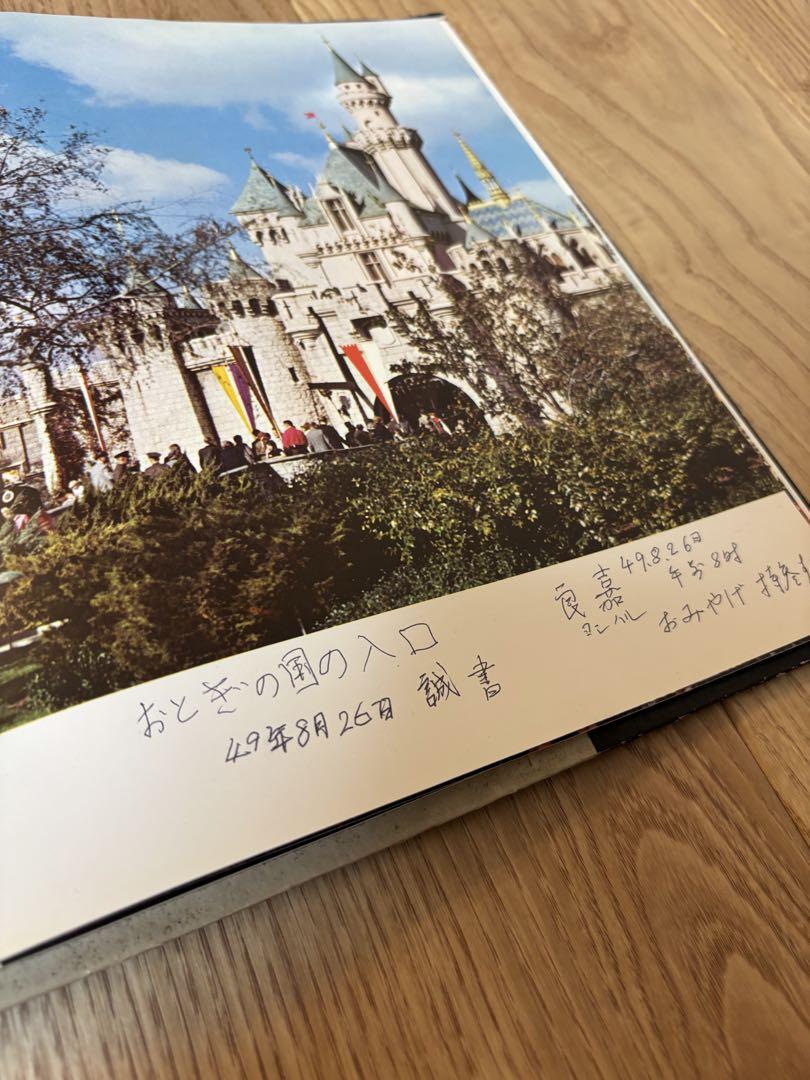 おとぎの国の入口
49年8月26日 誠書
良嘉 49.8.26日
ヨシハル 午前8時
おみやげ 持参